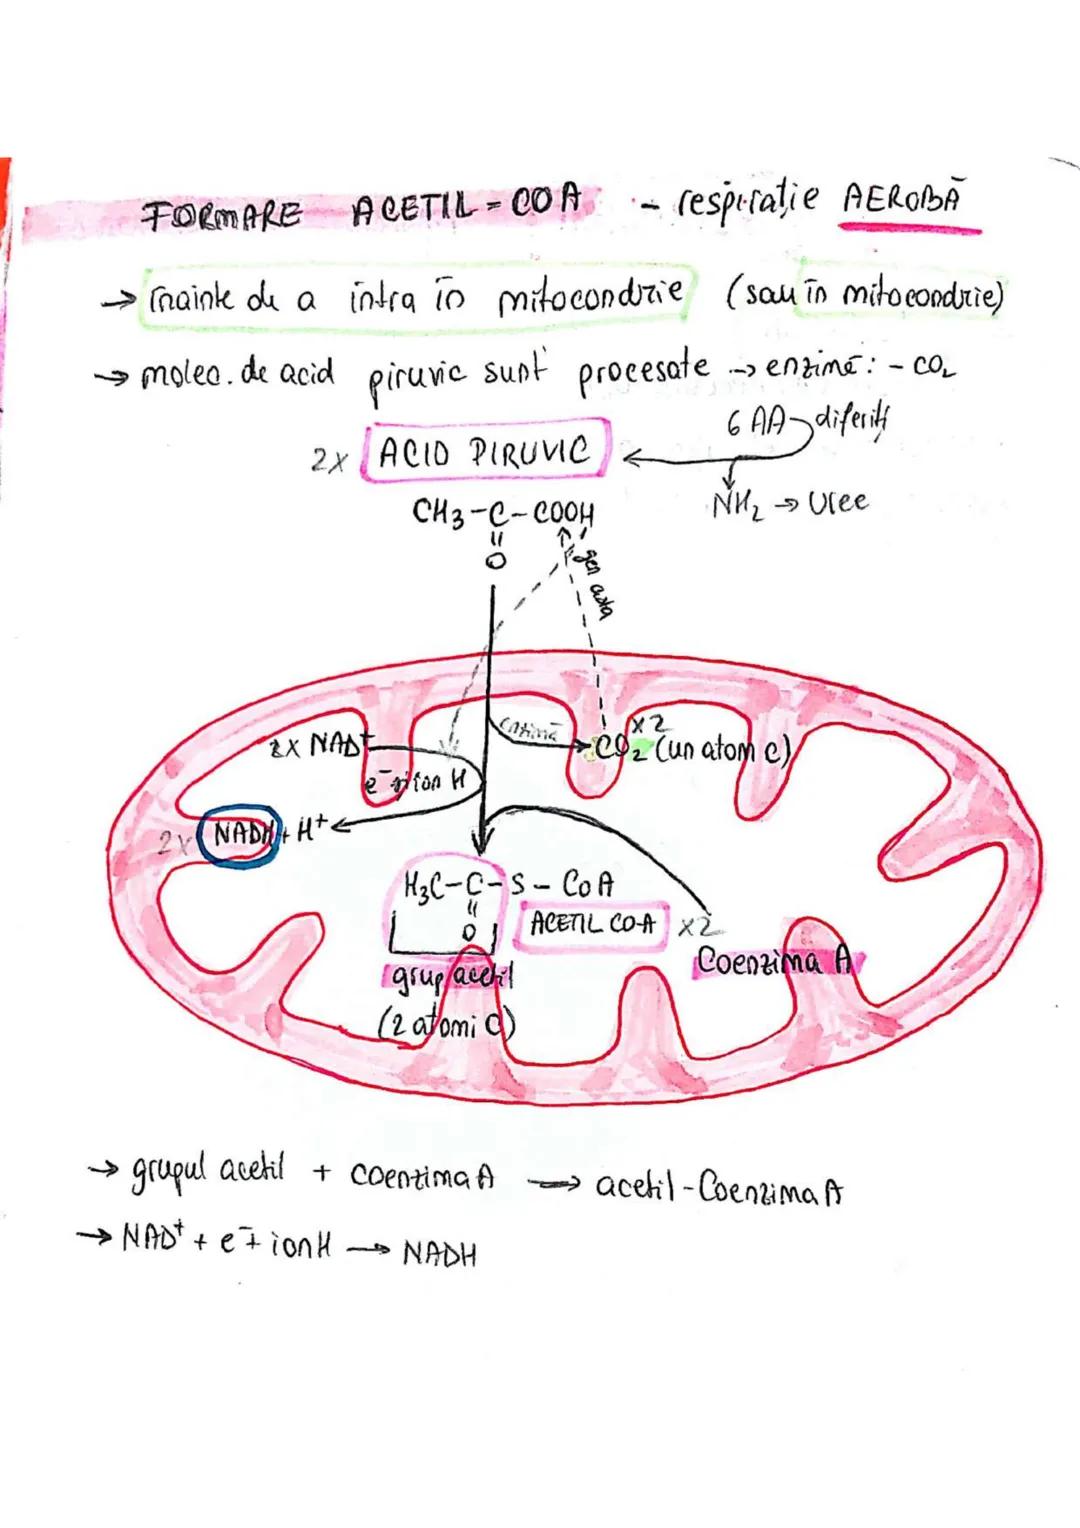 FORMARE ACETIL-COA - respirație AEROBĂ
→ înainte de a intra în mitocondrie (sau în mitocondrie)
→ molec. de acid piruvic sunt procesate → enzimă: - CO₂
6 AA diferiți
2x ACID PIRUVIC
NH₂ → Uree
CH3-C-COOH
O
gen asta
enzimă
x2
2x NAD⁺
CO₂ (un atom C)
e⁻ și ion H
2x NADH + H⁺
H₃C-C-S-CoA
O
ACETIL CO-A x2
Coenzima A
grup acetil
(2 atomi C)
→ grupul acetil + coenzima A → acetil-Coenzima A
→ NAD⁺ + e⁻ + ion H → NADH